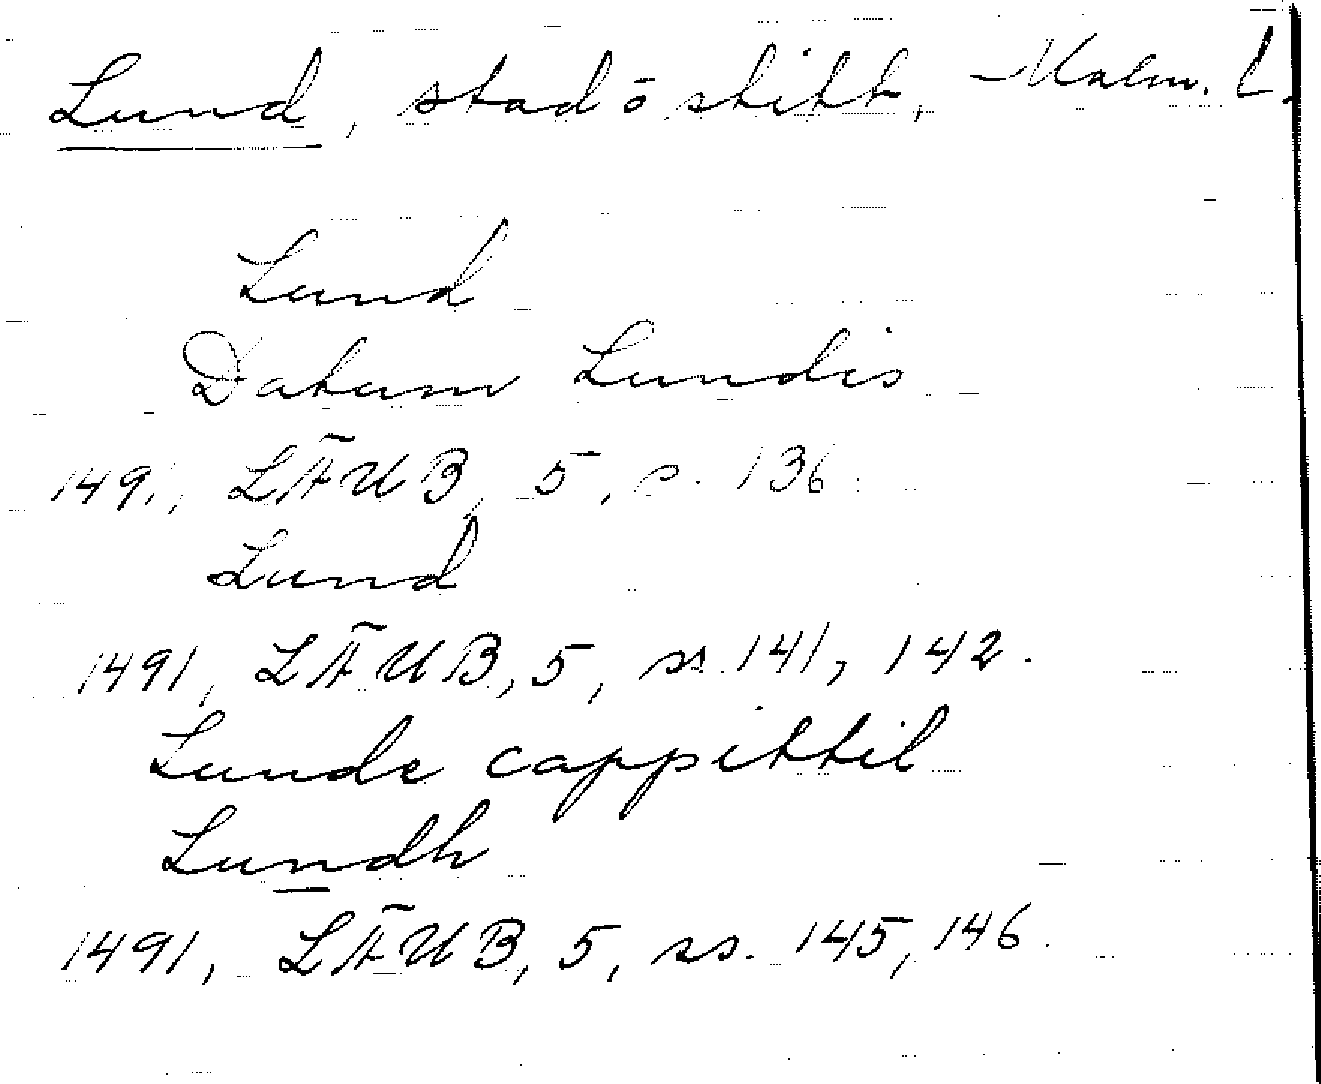 Lund, stad ō stift, Malm. L.
Lund
Datum Lundis
1491, LÄUB, 5, s. 136.
Lund
1491, LÄUB, 5, ss. 141, 142.
Lunde cappittil
Lundh
1491, LÄUB, 5, ss. 145, 146.